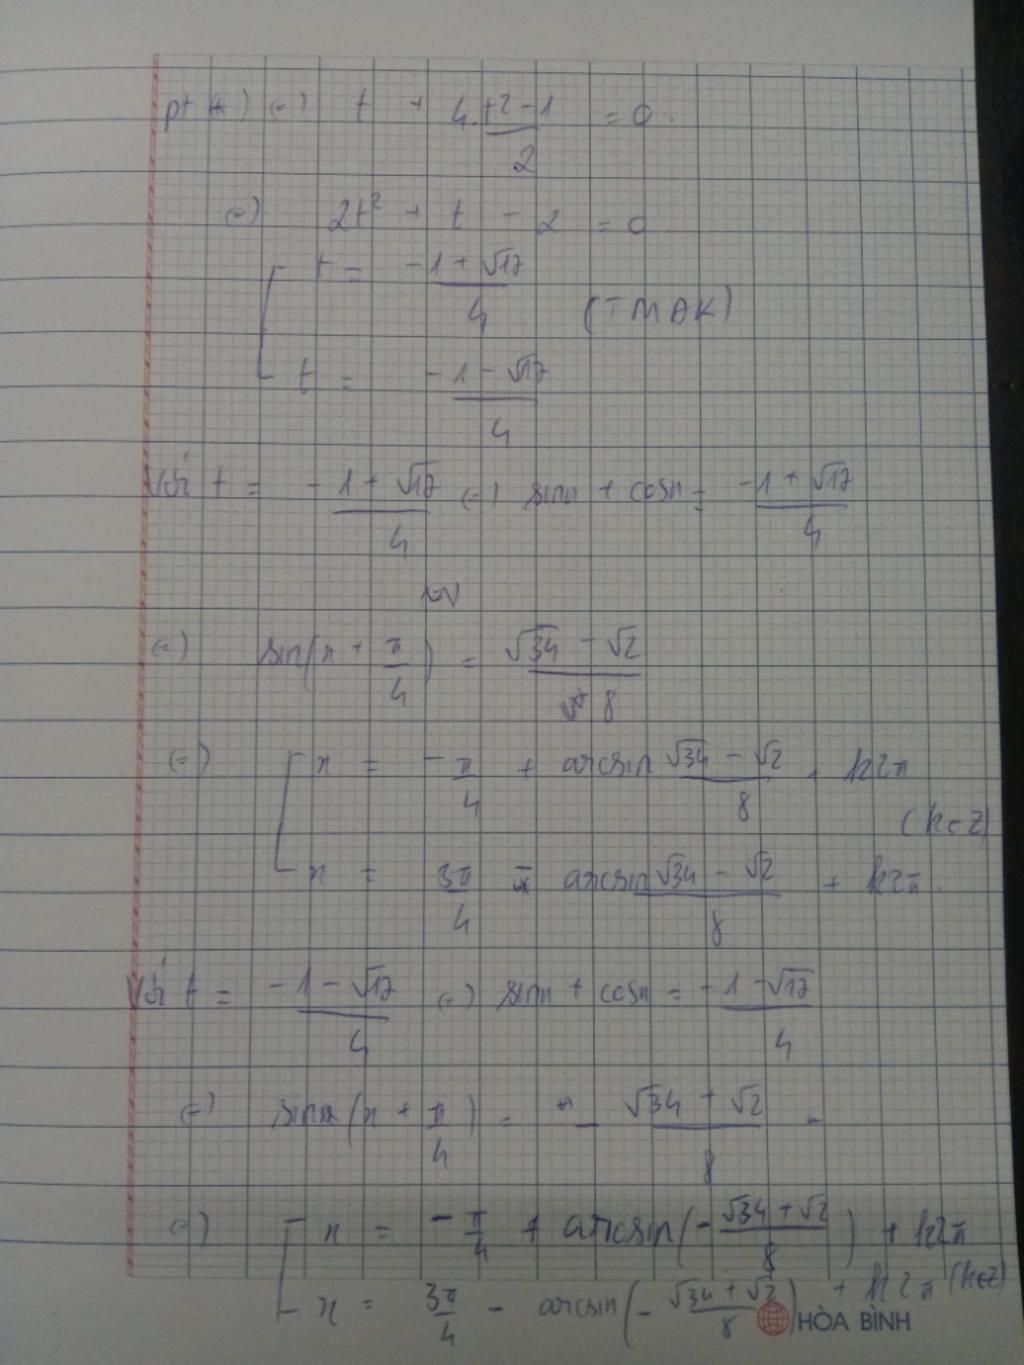 pt (*) (=) t + 4. (t² - 1)/2 = 0.
(=) 2t² + t - 2 = 0
t = (-1 + √17)/4
(TMĐK)
t = (-1 - √17)/4
Với t = (-1 + √17)/4 (=) sinx + cosx = (-1 + √17)/4
(=) sin(x + π/4) = (√34 - √2)/8
(=) x = -π/4 + arcsin (√34 - √2)/8 + k2π
(k∈Z)
x = 3π/4 - arcsin (√34 - √2)/8 + k2π.
Với t = (-1 - √17)/4 (=) sinx + cosx = (-1 - √17)/4
(=) sin(x + π/4) = - (√34 + √2)/8
(=) x = -π/4 + arcsin(- (√34 + √2)/8) + k2π
x = 3π/4 - arcsin(- (√34 + √2)/8) + k2π (k∈Z)
HÒA BÌNH